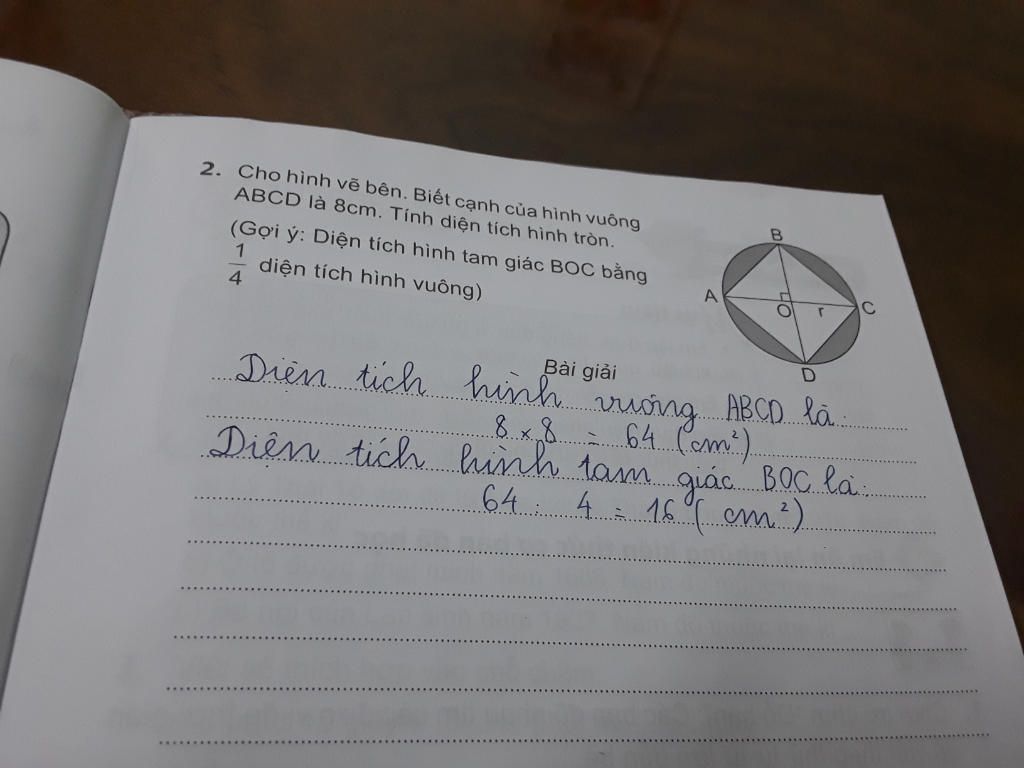 2. Cho hình vẽ bên. Biết cạnh của hình vuông
ABCD là 8cm. Tính diện tích hình tròn.
(Gợi ý: Diện tích hình tam giác BOC bằng
1/4 diện tích hình vuông)
B
A
O
r
C
D
Bài giải
Diện tích hình vuông ABCD là:
8 x 8 = 64 (cm²)
Diện tích hình tam giác BOC là:
64 : 4 = 16 (cm²)